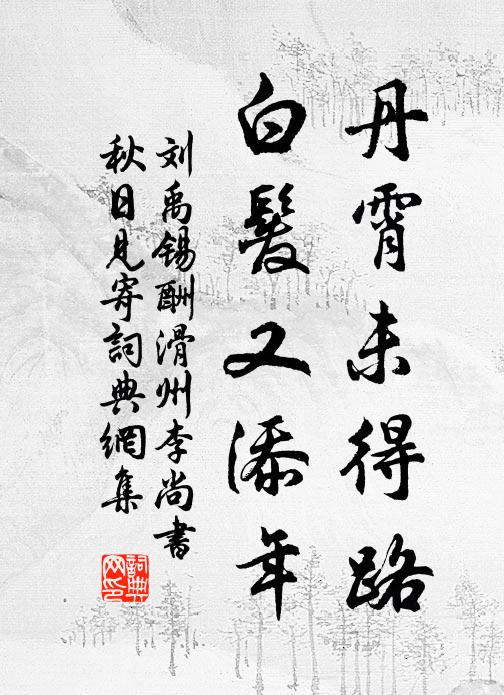 丹霄未得路
白髮又添年
刘禹锡酬滑州李尚書
秋日見寄詞典網集
詞典网印